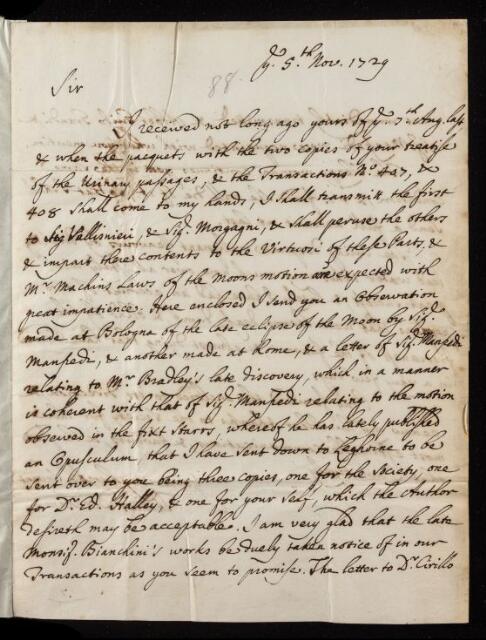 yͤ. 5.th Nov. 1729
88
Sir
I received not long ago yours of yͤ. 7.th Aug. last
& when the pacquets with the two copies of your treatise
of the Urinary passages, & the Transactions No. 407, &
408 shall come to my hands, I shall transmitt the first
to Sig Vallisnieri, & Sigr. Morgagni, & shall peruse the others
& impart there contents to the Virtuosi of these Parts, &
Mr. Machins Laws of the Moons motion are expected with
great impatience. Here enclosed I send you an Observation
made at Bologna of the late eclipse of the Moon by Sigr.
Manfredi, & another made at Rome, & a letter of Sigr. Manfredi
relating to Mr. Bradley's late discovery, which in a manner
is coherent with that of Sigr. Manfredi relating to the motion
observed in the fixt Starrs, whereof he has lately published
an Opusculum that I have sent down to Leghorne to be
sent over to you being three copies, one for the Society, one
for Dr. Ed. Halley, & one for your self, which the Author
desireth may be acceptable. I am very glad that the late
Monsigr. Bianchini's works be duely taken notice of in our
Transactions as you seem to promise. The letter to Dr. Cirillo